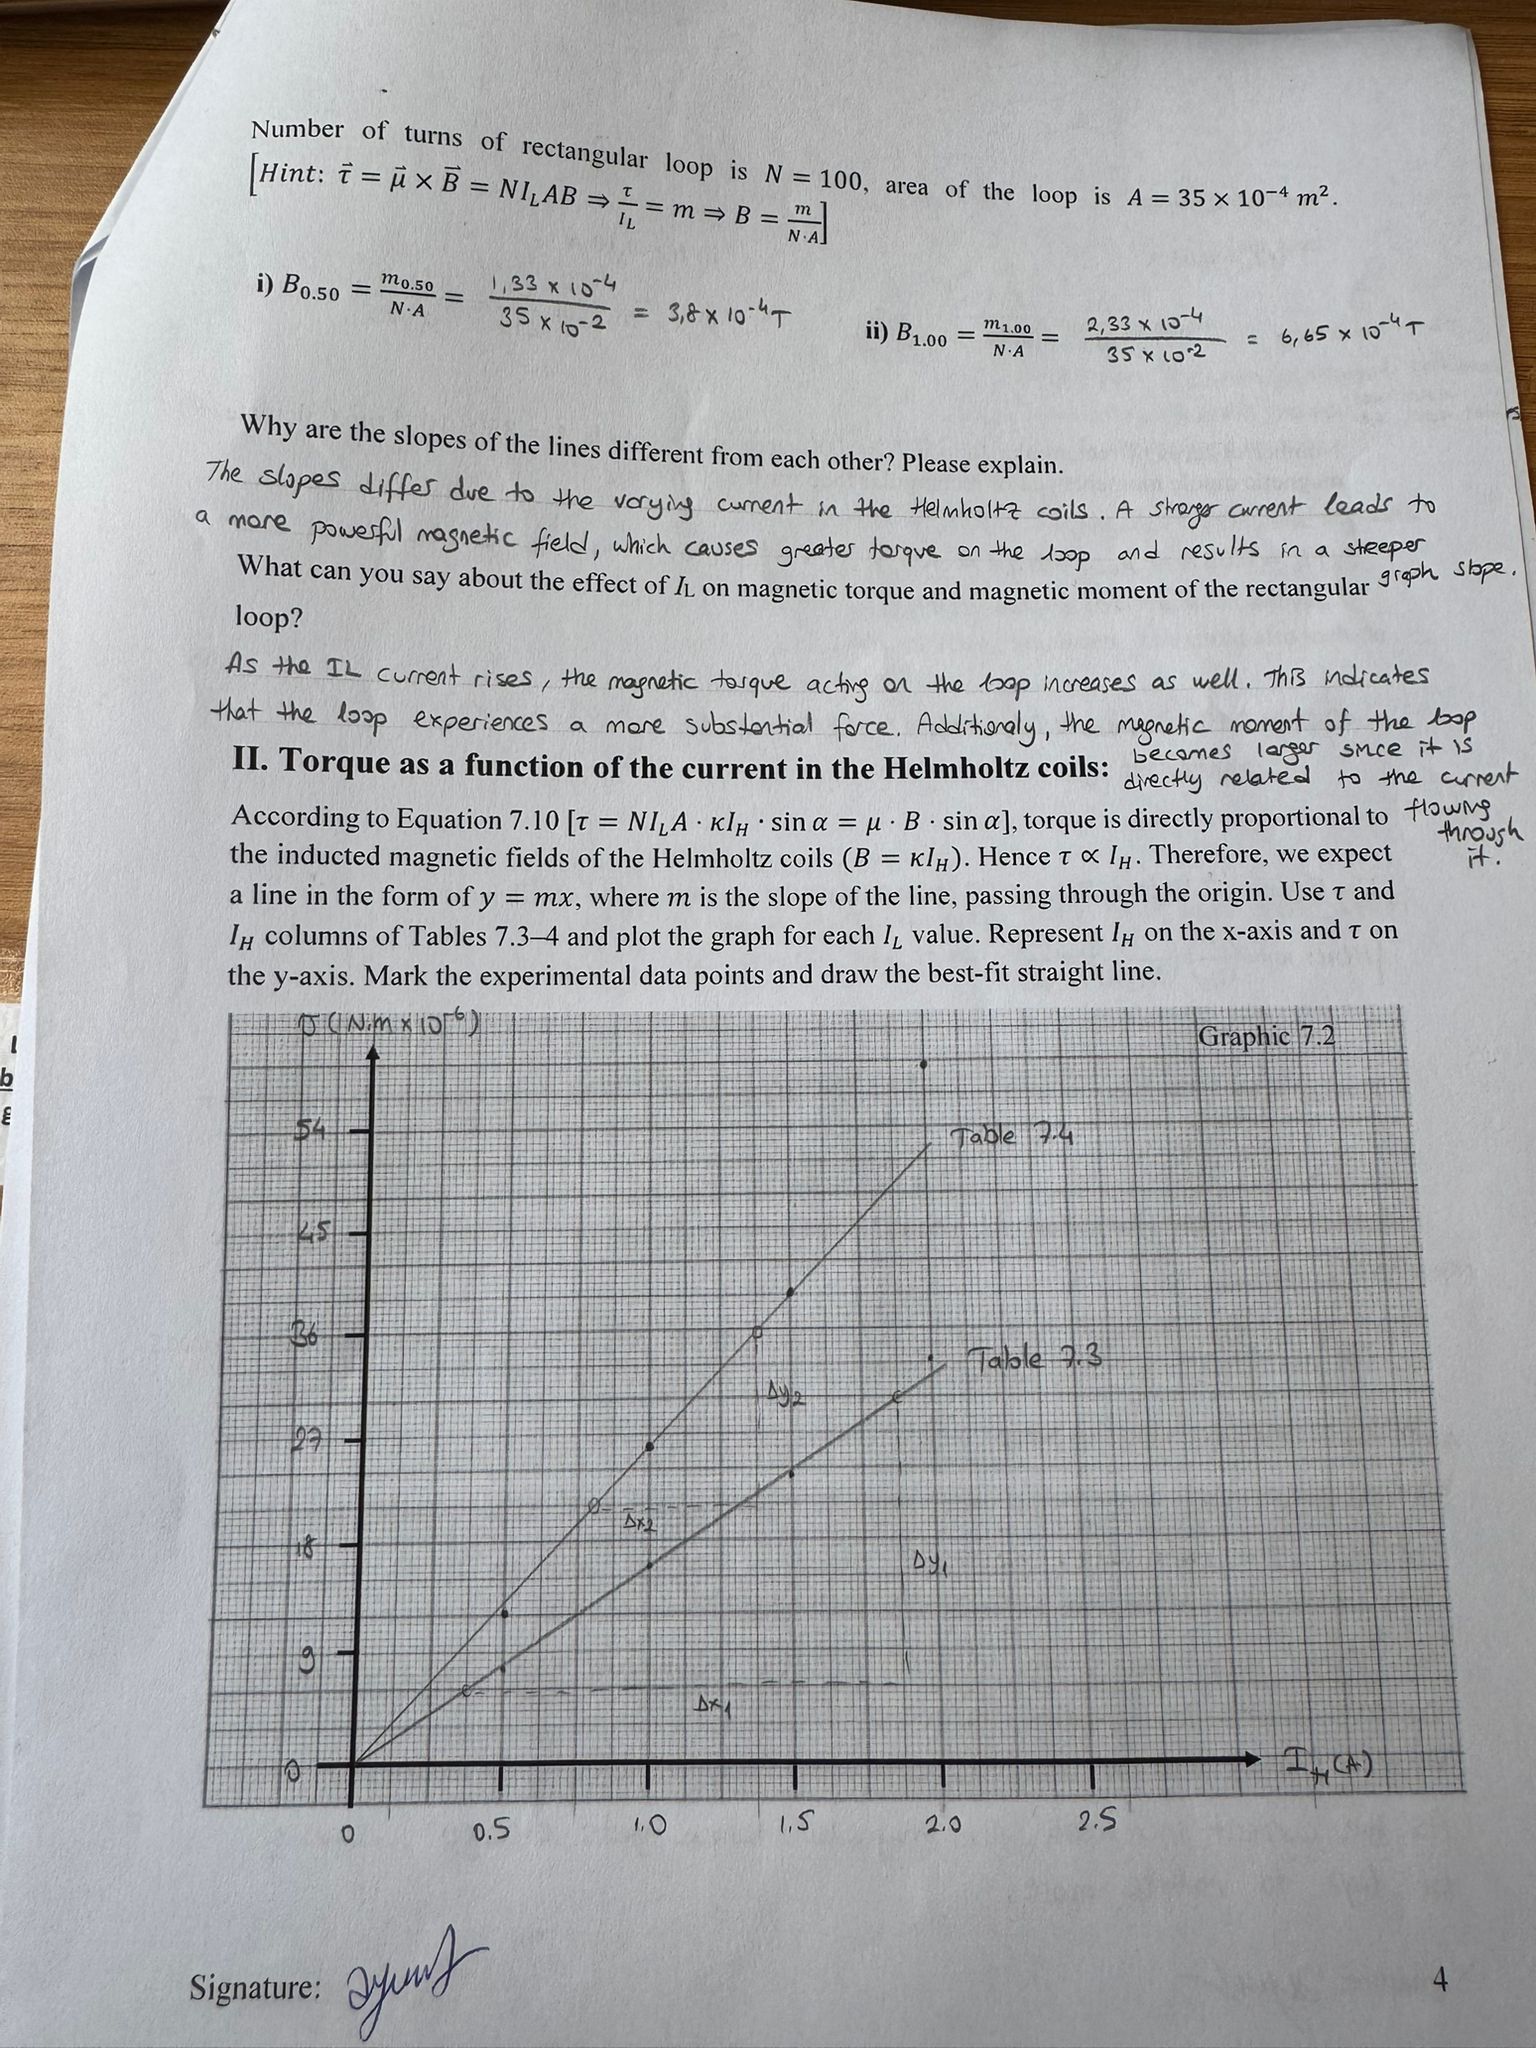 Number of turns of rectangular loop is N = 100, area of the loop is A = 35 × 10⁻⁴ m².
[Hint: τ⃗ = μ⃗ × B⃗ = NI_LAB ⇒ τ/I_L = m ⇒ B = m/N·A]
i) B₀.₅₀ = m₀.₅₀/N·A = 1,33 × 10⁻⁴/35 × 10⁻² = 3,8 × 10⁻⁴T
ii) B₁.₀₀ = m₁.₀₀/N·A = 2,33 × 10⁻⁴/35 × 10⁻² = 6,65 × 10⁻⁴T
Why are the slopes of the lines different from each other? Please explain.
The slopes differ due to the varying current in the Helmholtz coils. A stronger current leads to
a more powerful magnetic field, which causes greater torque on the loop and results in a steeper
graph slope.
What can you say about the effect of I_L on magnetic torque and magnetic moment of the rectangular
loop?
As the IL current rises, the magnetic torque acting on the loop increases as well. This indicates
that the loop experiences a more substantial force. Additionaly, the magnetic moment of the loop
becomes larger since it is
directly related to the current
flowing
through
it.
II. Torque as a function of the current in the Helmholtz coils:
According to Equation 7.10 [τ = NI_LA · κI_H · sin α = μ · B · sin α], torque is directly proportional to
the inducted magnetic fields of the Helmholtz coils (B = κI_H). Hence τ ∝ I_H. Therefore, we expect
a line in the form of y = mx, where m is the slope of the line, passing through the origin. Use τ and
I_H columns of Tables 7.3–4 and plot the graph for each I_L value. Represent I_H on the x-axis and τ on
the y-axis. Mark the experimental data points and draw the best-fit straight line.
τ (N.m × 10⁻⁶)
Graphic 7.2
54
Table 7.4
45
36
Table 7.3
Δy₂
27
Δx₂
18
Δy₁
9
Δx₁
0
I_H (A)
0 0.5 1.0 1.5 2.0 2.5
Signature:
4